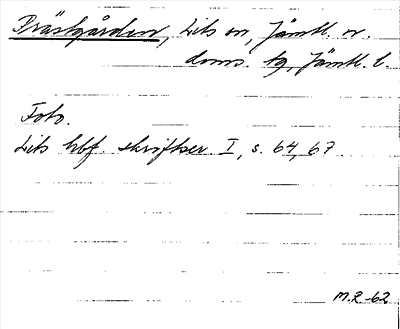 Prästgården, Lits sn, Jämtl. n.
doms. tg, Jämtl. l.
Foto.
Lits hbf. skriftser. I, s. 64, 67
M.R-62